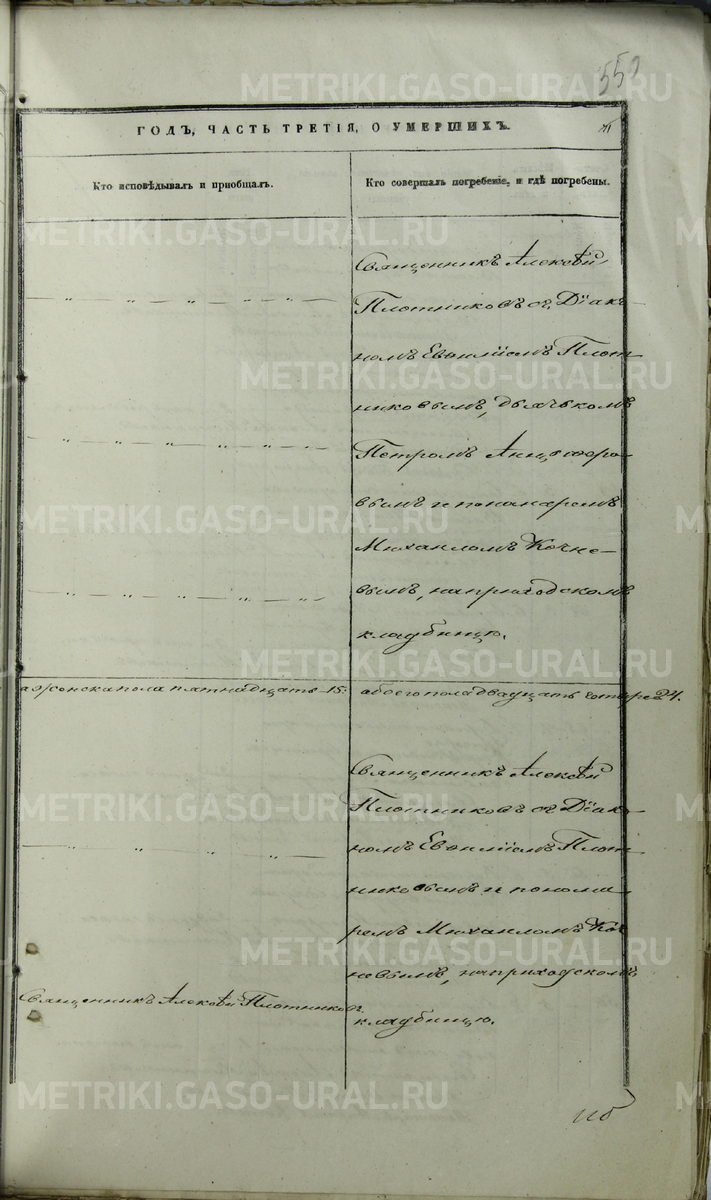 550
ГОДЪ, ЧАСТЬ ТРЕТІЯ, О УМЕРШИХЪ.
Кто исповѣдывалъ и пріобщалъ.
Кто совершалъ погребеніе, и гдѣ погребены.
Священникъ Алексѣй
Плотниковъ съ Діако-
номъ Евѳиміемъ Плот
никовымъ, дьячькомъ
Петромъ Анцыферо-
вымъ и пономаремъ
Михаиломъ Кочне-
вымъ, на приходскомъ
кладбищѣ.
а женска пола пятнадцать 15:
обоего пола двадцать четыре 24.
Священникъ Алексѣй
Плотниковъ съ Діако-
номъ Евѳиміемъ Плот
никовымъ и понома-
ремъ Михаиломъ Коч
невымъ, на приходскомъ
кладбищѣ.
Священникъ Алексѣй Плотниковъ
METRIKI.GASO-URAL.RU
METRIKI.GASO-URAL.RU
METRIKI.GASO-URAL.RU
METRIKI.GASO-URAL.RU
METRIKI.GASO-URAL.RU
METRIKI.GASO-URAL.RU
METRIKI.GASO-URAL.RU
METRIKI.GASO-URAL.RU